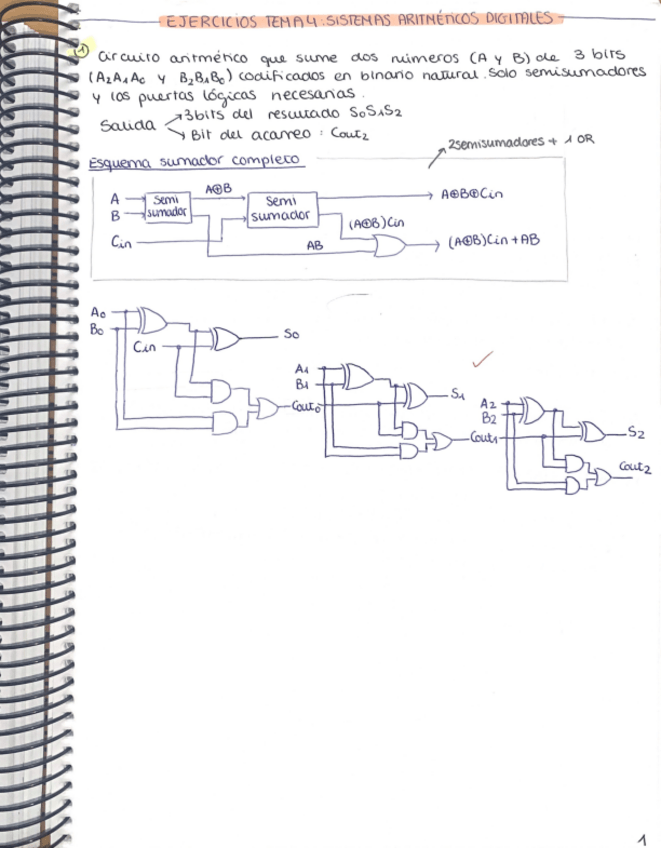 EJERCICIOS TEMA 4: SISTEMAS ARITMÉTICOS DIGITALES
① Circuito aritmético que sume dos números (A y B) de 3 bits
(A₂A₁A₀ y B₂B₁B₀) codificados en binario natural. Solo semisumadores
y los puertas lógicas necesarias.
Salida → 3 bits del resultado S₀S₁S₂
→ Bit del acarreo : Cout₂
2 semisumadores + 1 OR
Esquema sumador completo
A
B
Cin
Semi
sumador
A⊕B
Semi
sumador
A⊕B⊕Cin
(A⊕B)Cin
AB
(A⊕B)Cin + AB
A₀
B₀
Cin
S₀
Cout₀
A₁
B₁
S₁
Cout₁
A₂
B₂
S₂
Cout₂
1